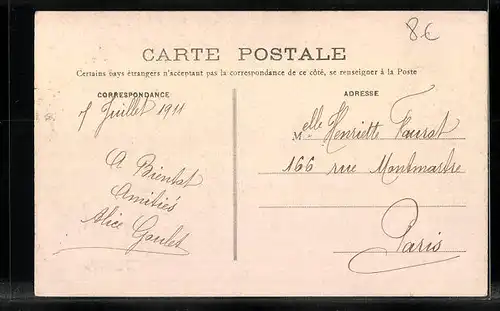 8€
CARTE POSTALE
Certains pays étrangers n'acceptant pas la correspondance de ce côté, se renseigner à la Poste
CORRESPONDANCE
7 Juillet 1911
A Bientot
Amitiés
Alice Goulet
ADRESSE
Melle Henriette Faurat
166 rue Montmartre
Paris